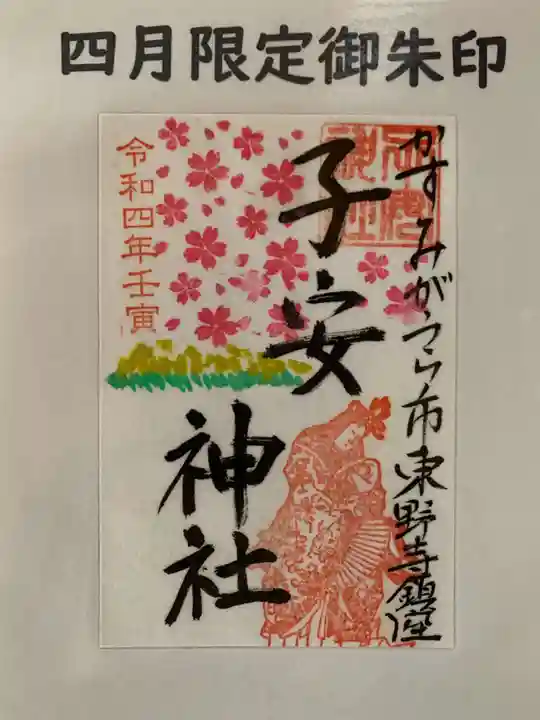 四月限定御朱印
かすみがうら市東野寺鎮座
子安神社
令和四年壬寅